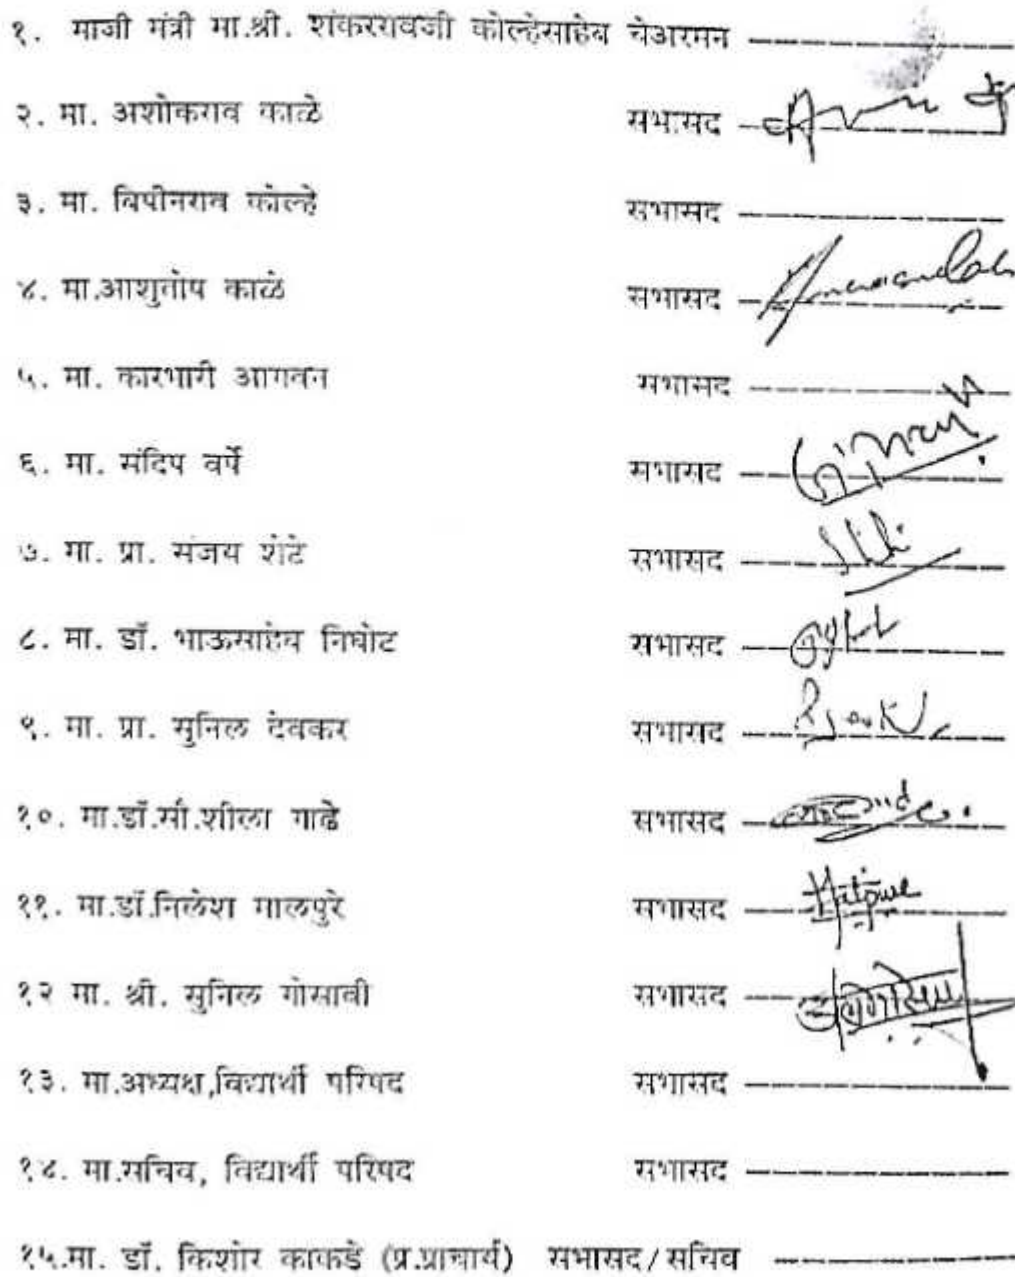 १. माजी मंत्री मा.श्री. शंकररावजी कोल्हेसाहेब चेअरमन
२. मा. अशोकराव काळे सभासद
३. मा. बिपीनराव कोल्हे सभासद
४. मा.आशुतोष काळे सभासद
५. मा. कारभारी आगवन सभासद
६. मा. संदिप वर्पे सभासद
७. मा. प्रा. संजय शेटे सभासद
८. मा. डॉ. भाऊसाहेब निघोट सभासद
९. मा. प्रा. सुनिल देवकर सभासद
१०. मा.डॉ.सौ.शीला गाढे सभासद
११. मा.डॉ.निलेश मालपुरे सभासद
१२ मा. श्री. सुनिल गोसावी सभासद
१३. मा.अध्यक्ष,विद्यार्थी परिषद सभासद
१४. मा.सचिव, विद्यार्थी परिषद सभासद
१५.मा. डॉ. किशोर काकडे (प्र.प्राचार्य) सभासद/सचिव